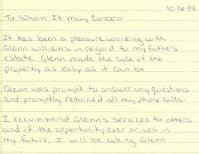 10-14-14
To Whom It May Concern
It has been a pleasure working with
Glenn Williams in regard to my fathers
estate. Glenn made the sale of the
property as easy as it can be.
Glenn was prompt to answer any questions
and promptly returned all my phone calls.
I recommend Glenn's services to others
and if the opportunity ever arises in
my future, I will be calling Glenn